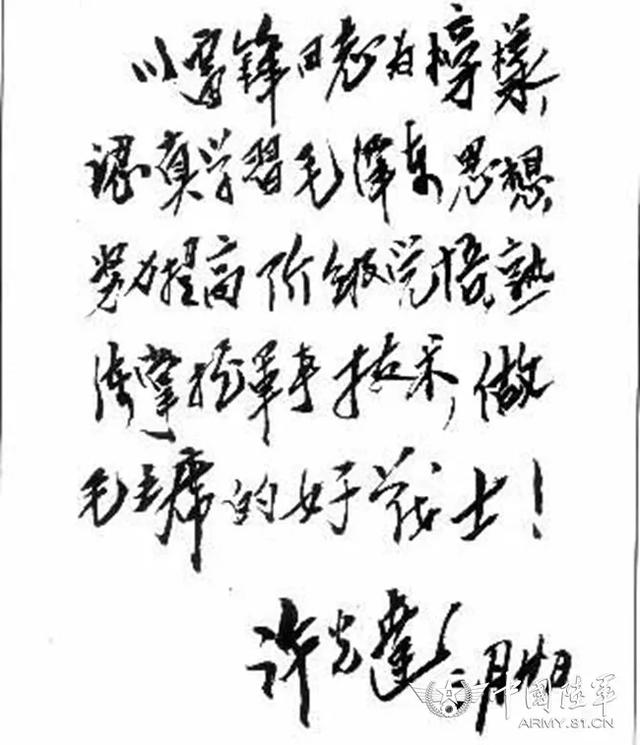 以雷锋同志为榜様,
認真学習毛澤东思想,
努力提高阶级觉悟,熟
练掌握軍事技术,做
毛主席的好战士!
许光達
二月廿日
中國陸軍
ARMY.81.CN